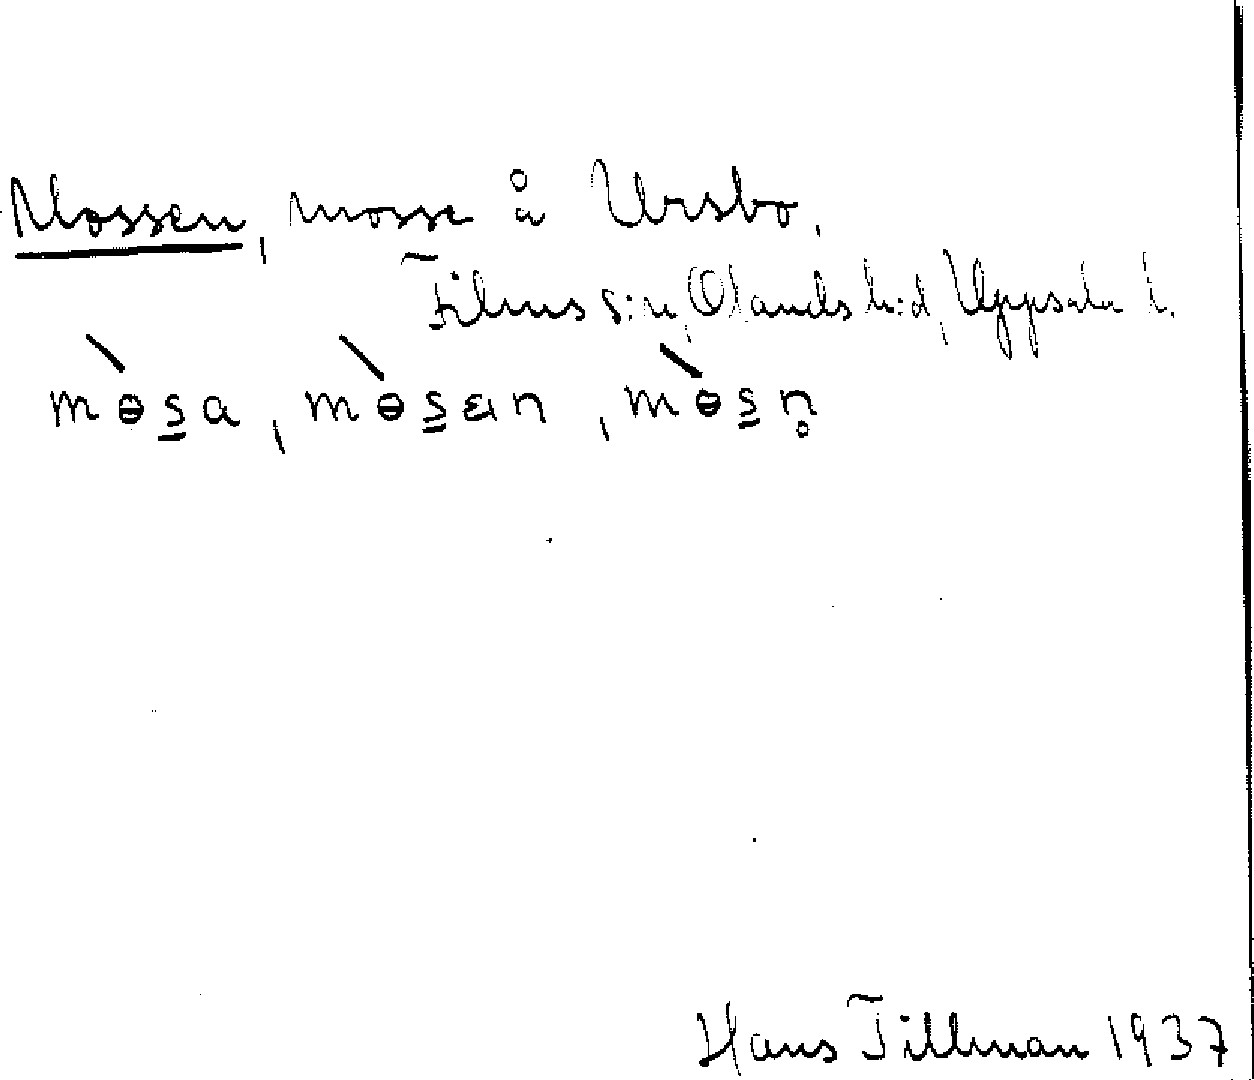 Mossen, mosse å Ursbo,
Films s:n, Olands h:d, Uppsala l.
mɵ̀s̲a, mɵ̀s̲ɛn, mɵ̀s̲n̥
Hans Tillman 1937